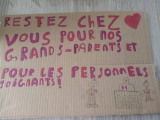 RESTEZ CHEZ
VOUS POUR NOS
GRANDS-PARENTS ET
POUR LES PERSONNELS
SOIGNANTS!